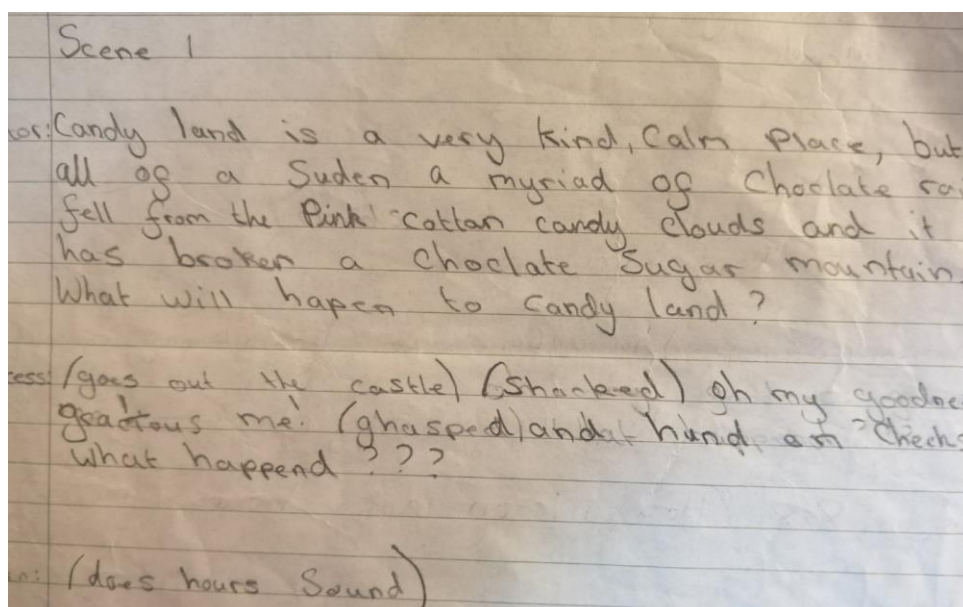 Scene 1
or: Candy land is a very kind, Calm Place, but
all of a Suden a myriad of Choclate
fell from the Pink cottan candy clouds and it
has broken a choclate Sugar mountain.
What will hapen to candy land?
ess: (goes out the castle) (Shocked) Oh my goodne
me! (ghasped) hand on Cheeks
What happend???
(does hours Sound)